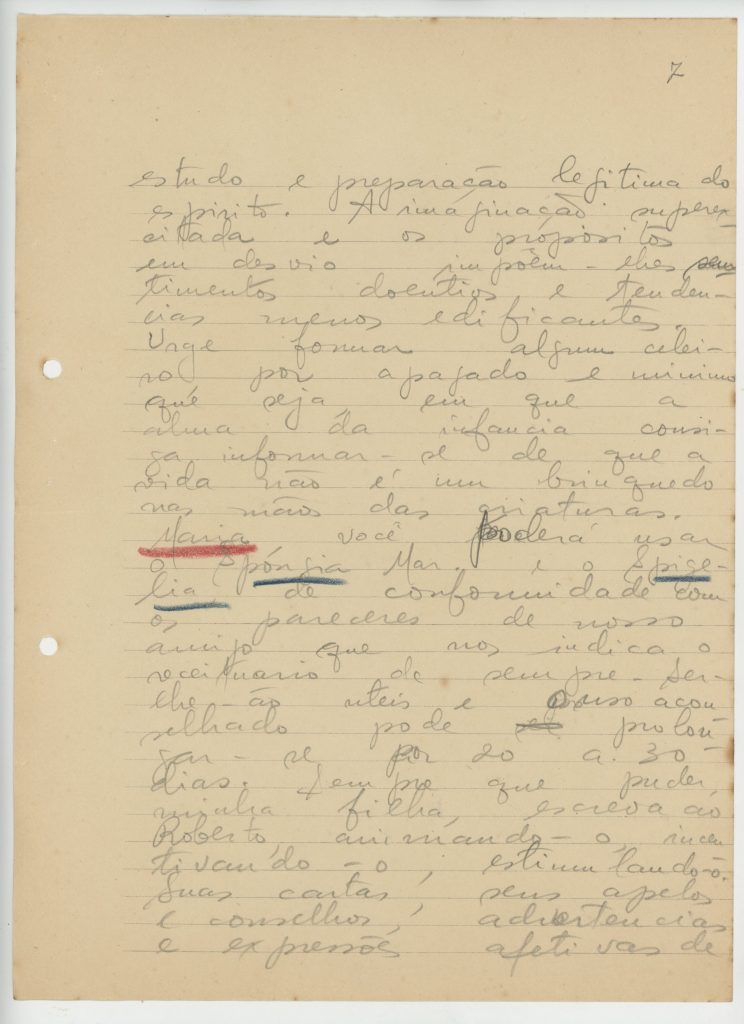 7
estudo e preparação legitima do
espirito. A imaginação superex-
citada e os propósitos
em desvio impõem-lhes sen
timentos doentios e tenden-
cias menos edificantes.
Urge formar algum celei-
ro por apagado e minimo
que seja, em que a
alma da infancia consi-
ga informar-se de que a
vida não é um brinquedo
nas mãos das criaturas.
Maria você poderá usar
o Spóngia Mar. e o Spige-
lia, de conformidade com
os pareceres de nosso
amigo que nos indica o
receituario de sempre. Ser-
lhe-ão uteis e o uso acon
selhado pode prolon-
gar-se por 20 a 30
dias. Sempre que puder,
minha filha, escreva ao
Roberto, animando-o, incen
tivando-o, estimulando-o.
Suas cartas, seus apelos
e conselhos, advertencias
e expressões afetivas de